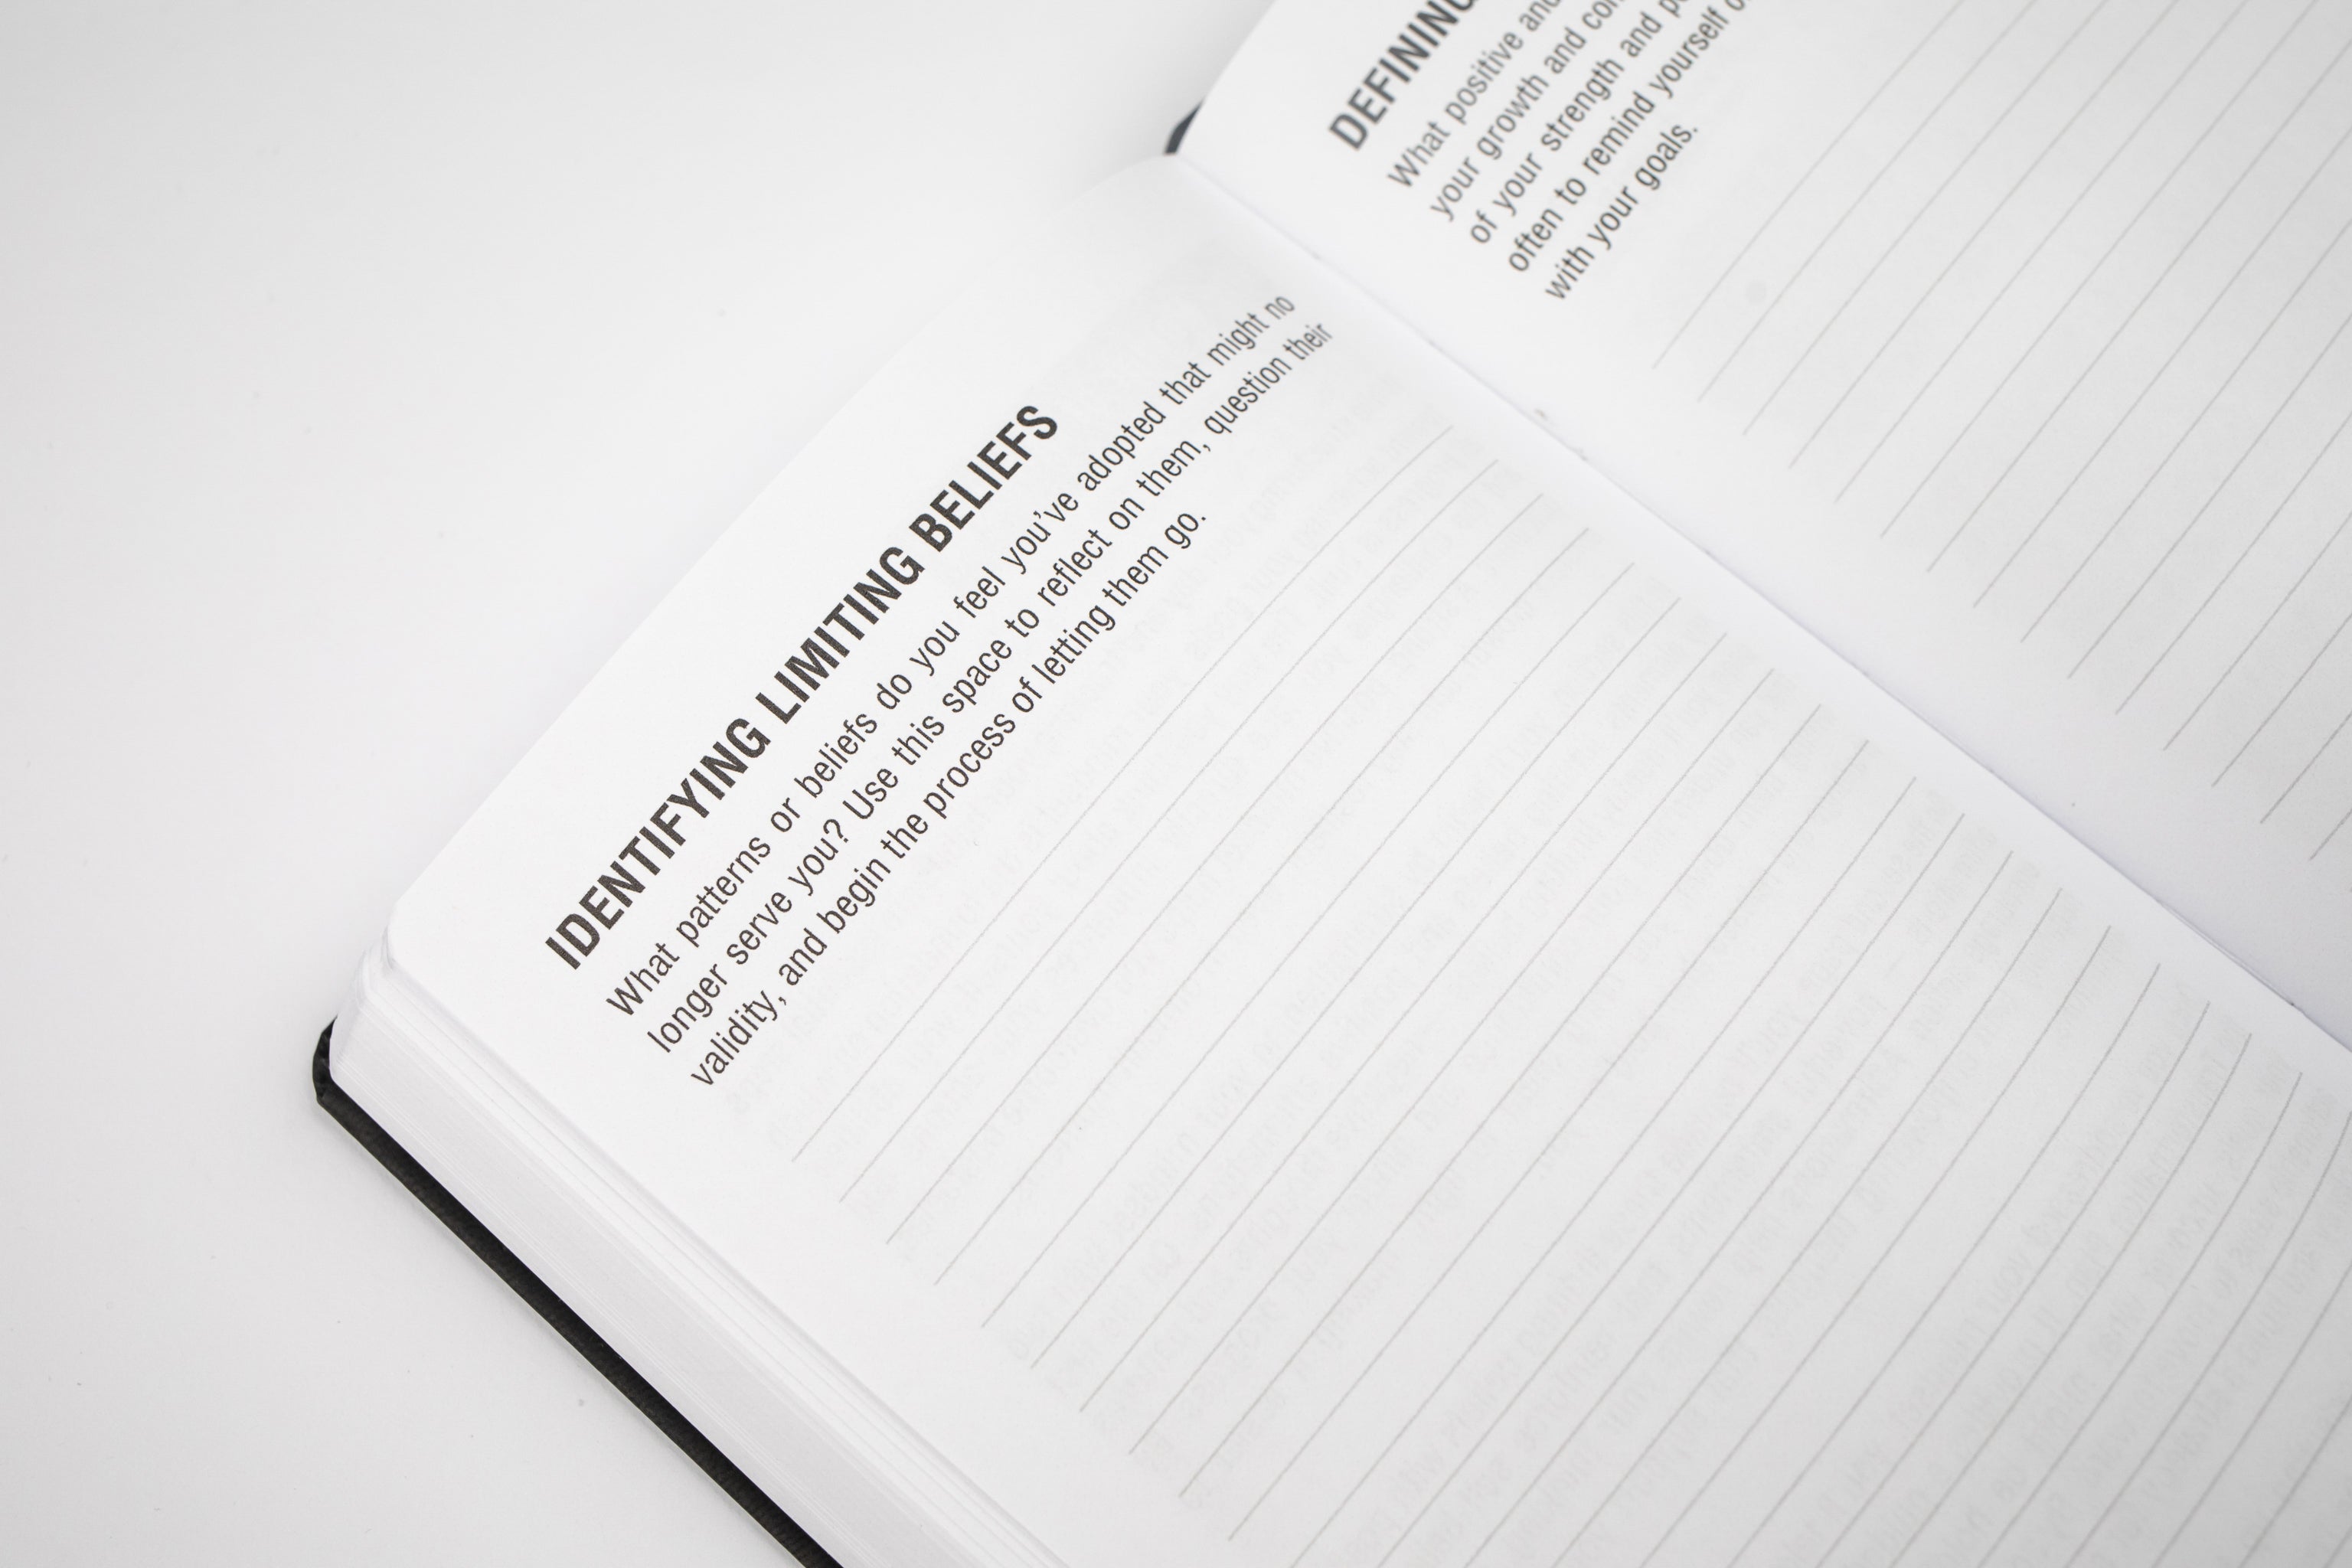 IDENTIFYING LIMITING BELIEFS
What patterns or beliefs do you feel you've adopted that might no
longer serve you? Use this space to reflect on them, question their
validity, and begin the process of letting them go.
DEFINING
What positive and
your growth and
of your strength and
often to remind yourself
with your goals.